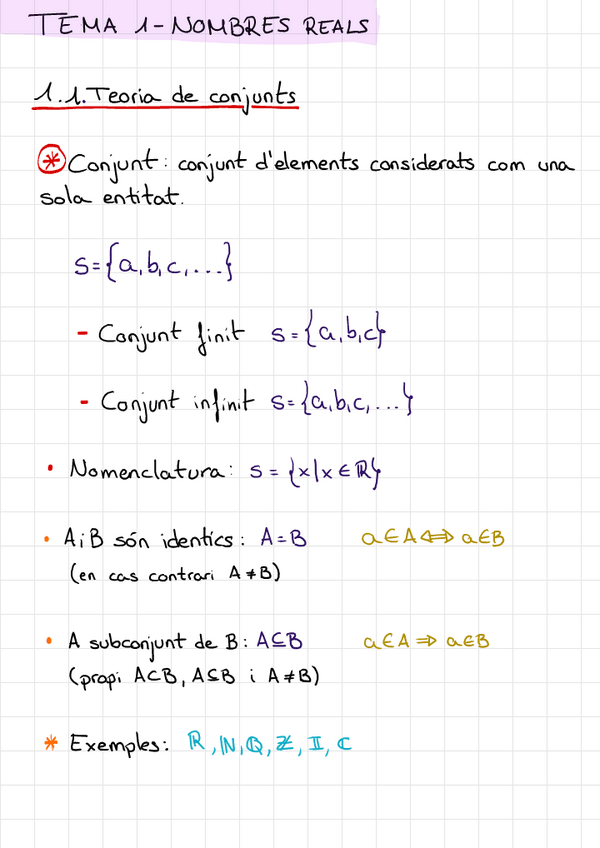 TEMA 1-NOMBRES REALS
1.1. Teoria de conjunts
* Conjunt: conjunt d'elements considerats com una
sola entitat.
S={a,b,c,...}
- Conjunt finit S={a,b,c}
- Conjunt infinit S={a,b,c,...}
• Nomenclatura: S = {x|x∈ℝ}
• A i B són identics: A=B a∈A⇔a∈B
(en cas contrari A≠B)
• A subconjunt de B: A⊆B a∈A⇒a∈B
(propi A⊂B, A⊆B i A≠B)
* Exemples: ℝ, ℕ, ℚ, ℤ, 𝕀, ℂ